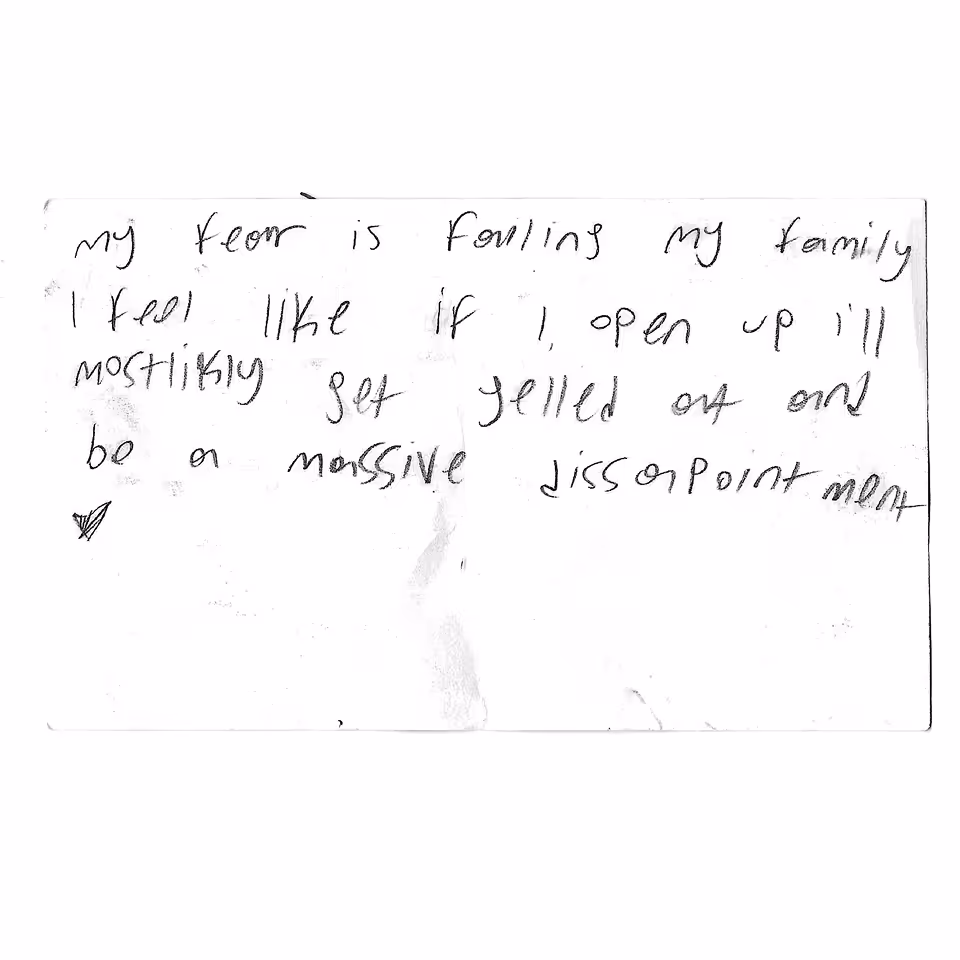 my fear is failing my family
I feel like if I, open up i'll
mostlikly get yelled at and
be a massive dissapointment